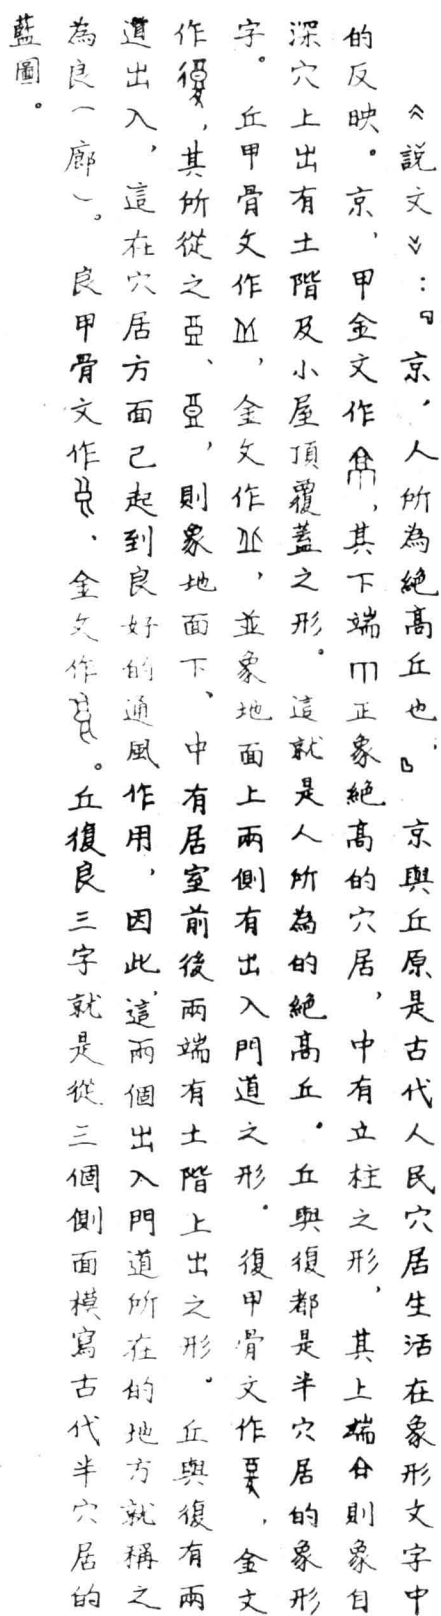 《説文》：『京，人所為絕高丘也。』京與丘原是古代人民穴居生活在象形文字中
的反映。京，甲金文作，其下端正象絕高的穴居，中有立柱之形，其上端則象自
深穴上出有土階及小屋頂覆蓋之形。這就是人所為的絕高丘。丘與復都是半穴居的象形
字。丘甲骨文作，金文作，並象地面上兩側有出入門道之形。復甲骨文作，金文
作，其所從之、，則象地面下、中有居室前後兩端有土階上出之形。丘與復有兩
道出入，這在穴居方面已起到良好的通風作用，因此，這兩個出入門道所在的地方就稱之
為良（廊）。良甲骨文作、金文作。丘復良三字就是從三個側面模寫古代半穴居的
藍圖。